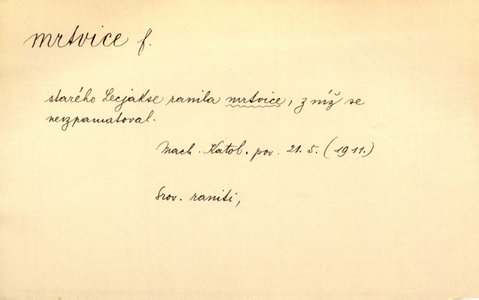 mrtvice f.
starého Lecjakse ranila mrtvice, z níž se
nezpamatoval.
Mach. Katob. pov. 21. 5. (1911.)
Srov. raniti,